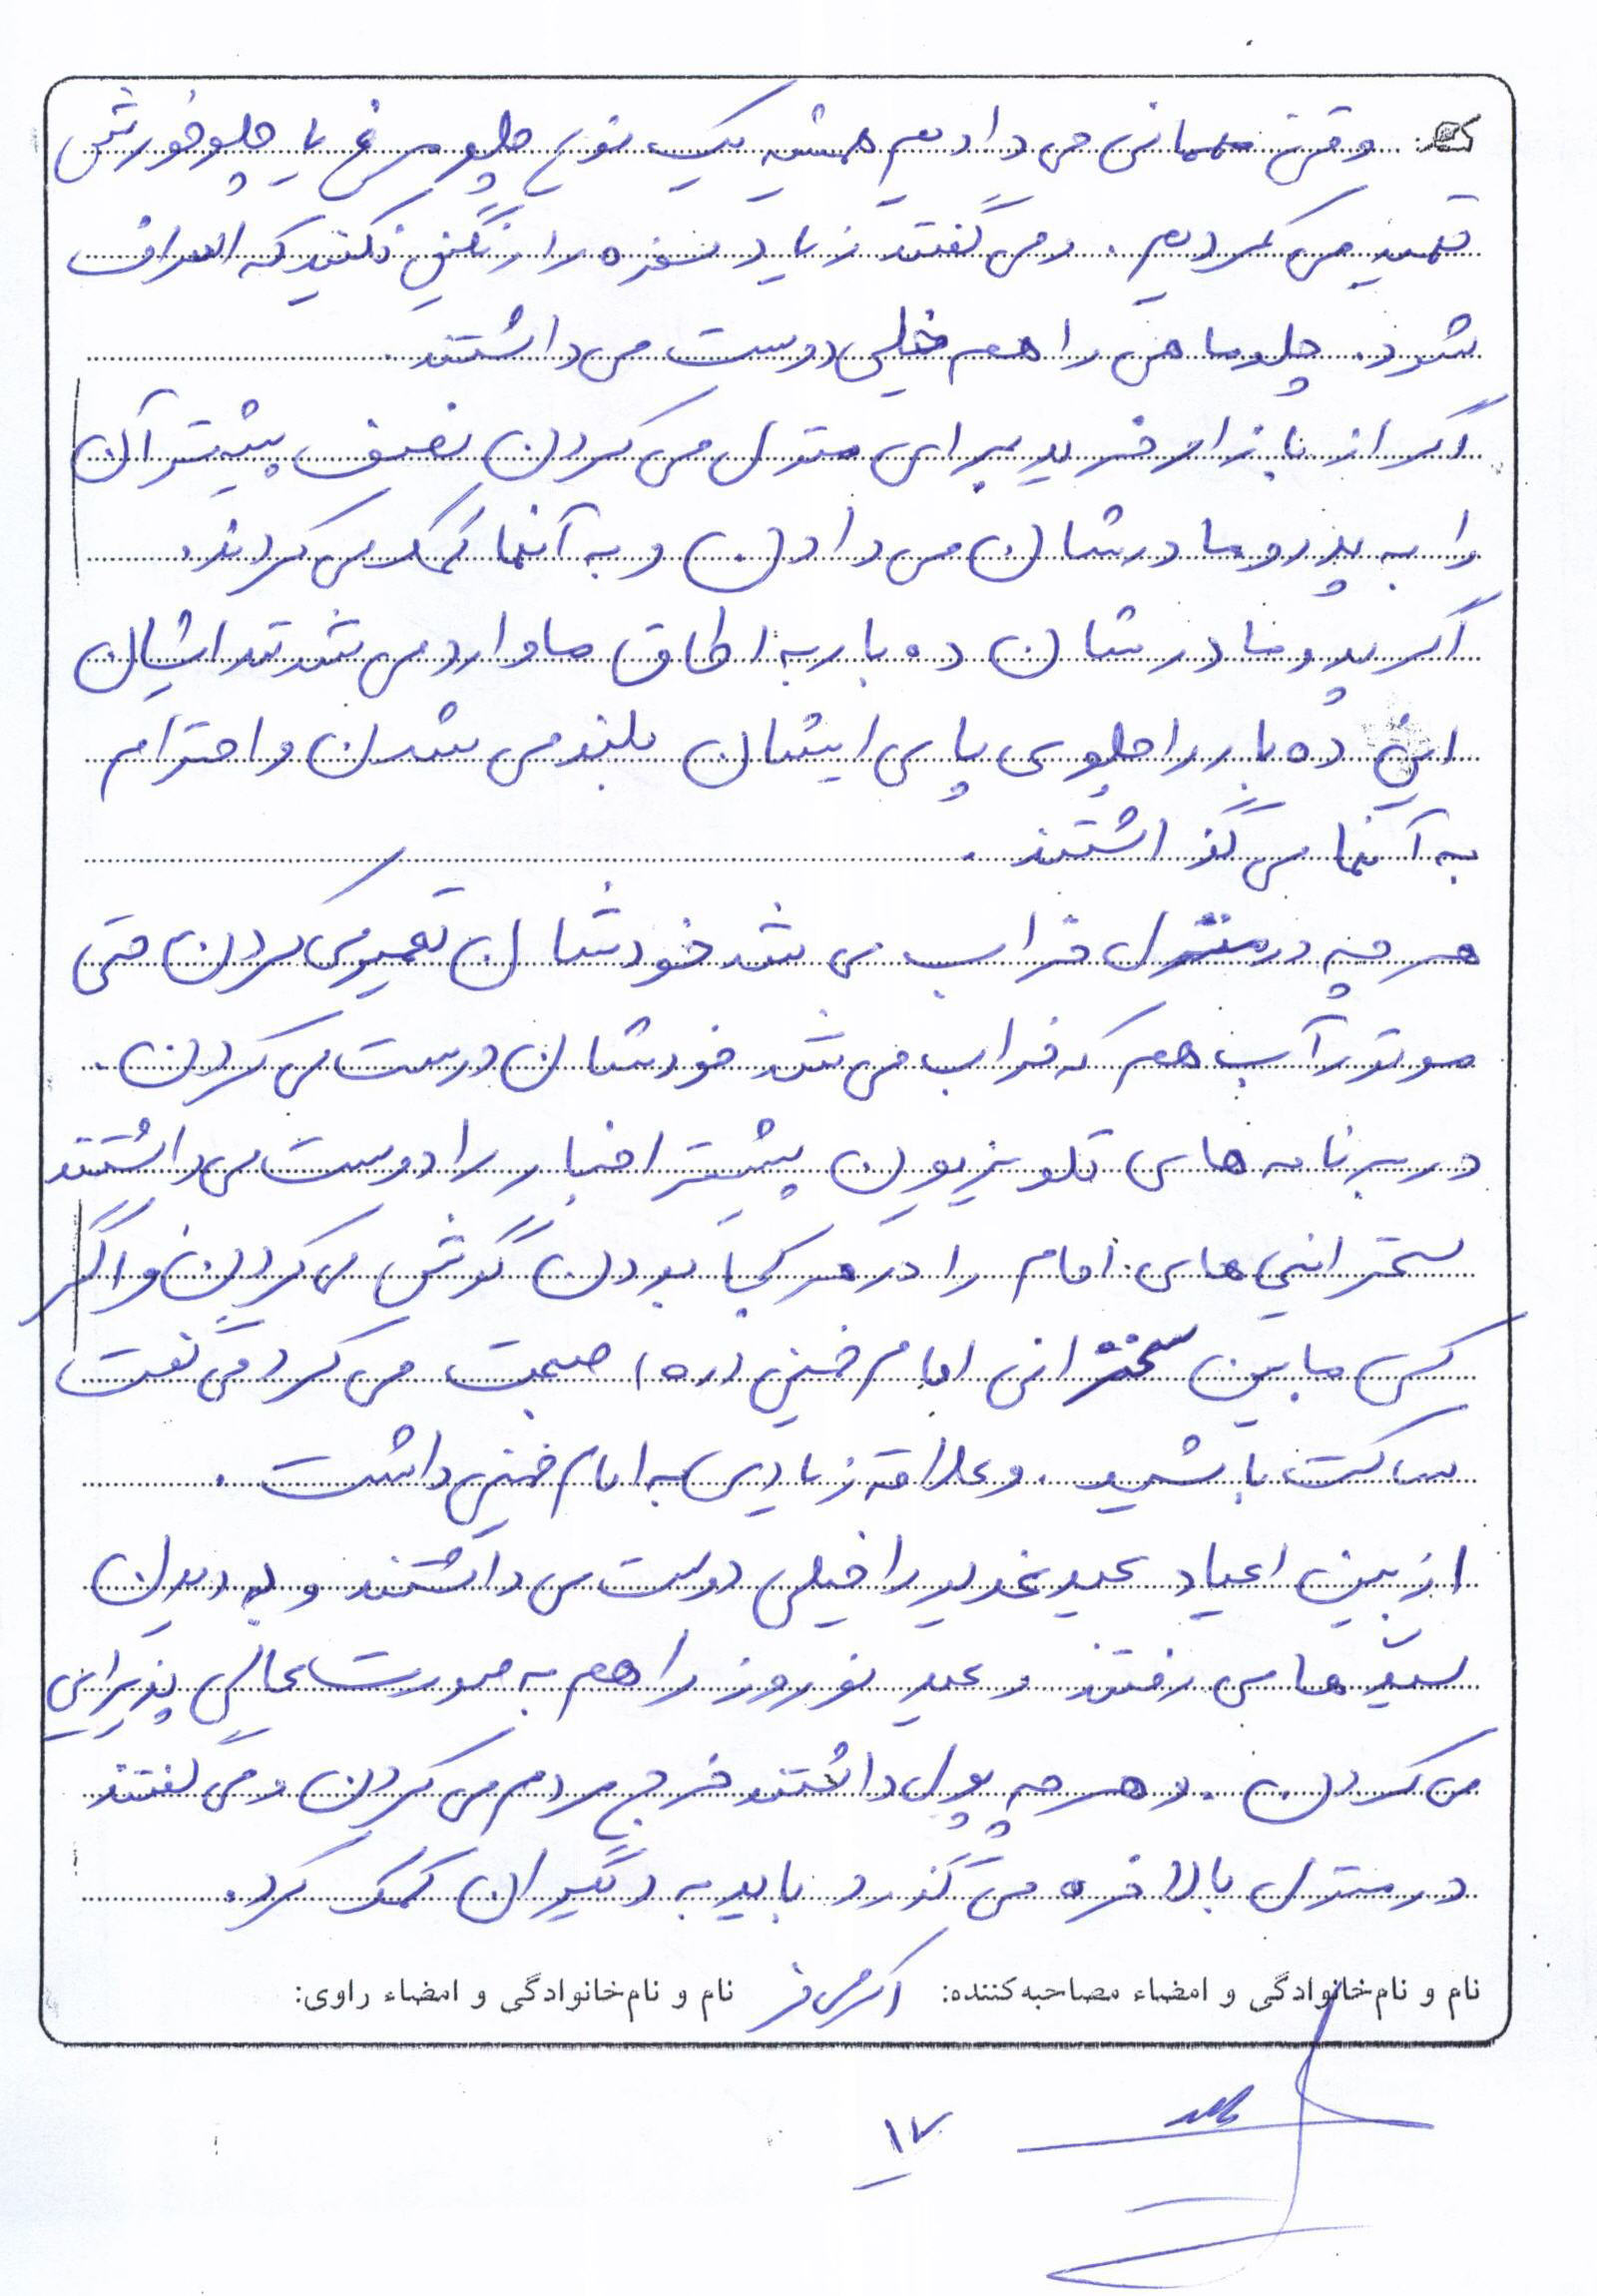 وقتی مهمانی می دادیم همیشه یک نوع چلو مرغ یا چلو خورش
تهیه می کردیم. و می گفتند زیاد سفره را رنگین نکنید که اسراف
شود. چلو ماهی را هم خیلی دوست می داشتند.
اگر از بازار خرید برای منزل می کردن نصف بیشتر آن
را به پدر و مادرشان می دادن و به آنها کمک می کردند.
اگر پدر و مادرشان ده بار به اطاق ما وارد می شدند ایشان
این ده بار را جلوی پای ایشان بلند می شدن و احترام
به آنها می گذاشتند.
هر چه در منزل خراب می شد خودشان تعمیر می کردن حتی
موتور آب هم که خراب می شد خودشان درست می کردن.
در برنامه های تلویزیون بیشتر اخبار را دوست می داشتند
سخنرانی های امام را در هر کجا بودن گوش می کردن و اگر
کسی مابین سخنرانی امام خمینی (ره) صحبت می کرد می گفت
ساکت باشید. و علاقه زیادی به امام خمینی داشت.
از بین اعیاد عید غدیر را خیلی دوست می داشتند و به دیدن
سیدها می رفتند و عید نوروز را هم به صورت عالی پذیرایی
می کردن. و هر چه پول داشتند خرج مردم می کردن و می گفتند
در منزل بالاخره می گذرد باید به دیگران کمک کرد.
نام و نام‌خانوادگی و امضاء مصاحبه‌کننده: نام و نام‌خانوادگی و امضاء راوی:
۱۷